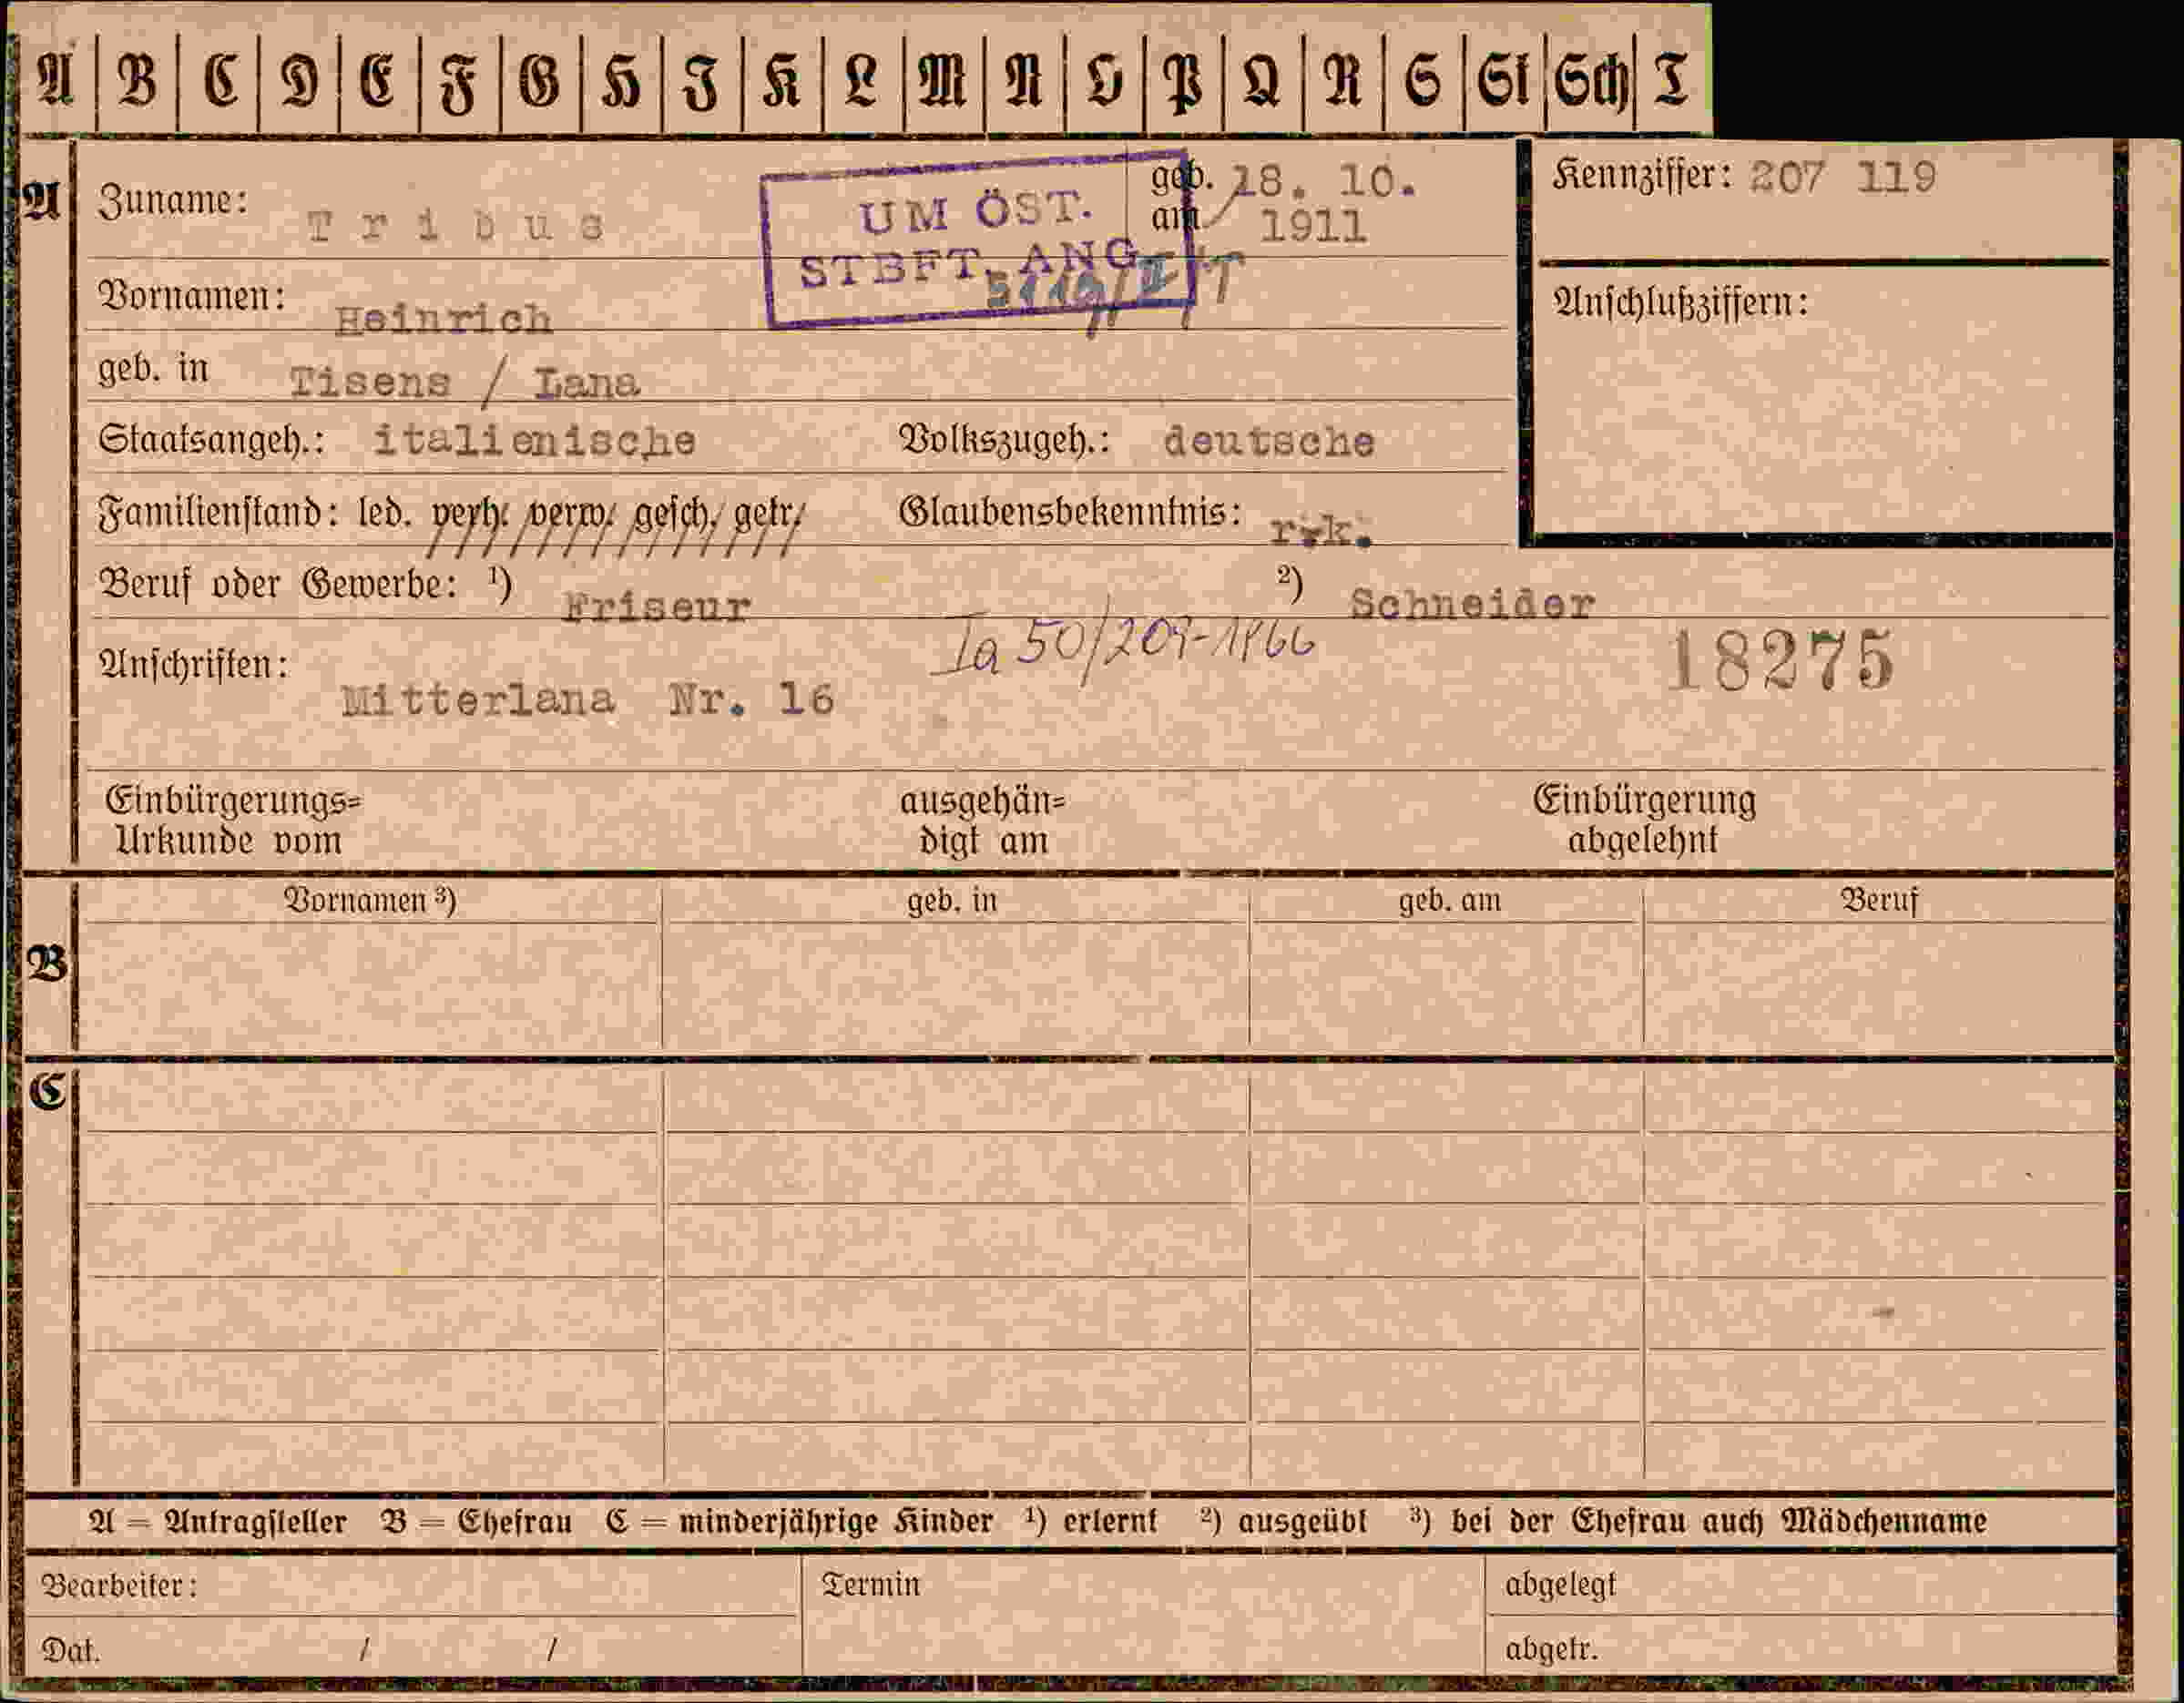 A B C D E F G H I K L M N O P Q R S St Sch T
A Zuname: Tribus geb. am 18. 10. 1911 Kennziffer: 207 119
UM ÖST.
STBFT. ANG.
Vornamen: Heinrich Anschlußziffern:
geb. in Tisens / Lana
Staatsangeh.: italienische Volkszugeh.: deutsche
Familienstand: led. verh. verw. gesch. getr. Glaubensbekenntnis: r.k.
Beruf oder Gewerbe: ¹) Friseur ²) Schneider
Ia 50/209-1966 18275
Anschriften: Mitterlana Nr. 16
Einbürgerungs= ausgehän= Einbürgerung
Urkunde vom digt am abgelehnt
Vornamen ³) geb. in geb. am Beruf
B
C
A = Antragsteller B = Ehefrau C = minderjährige Kinder ¹) erlernt ²) ausgeübt ³) bei der Ehefrau auch Mädchenname
Bearbeiter: Termin abgelegt
Dat. / / abgetr.